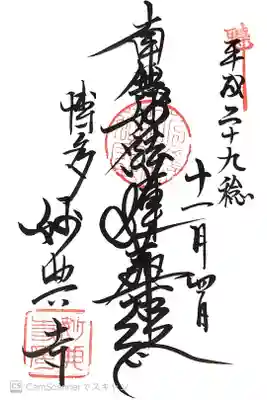 平成二十九稔
十一月四日
南無妙法蓮華経
博多
妙典寺
CamScanner でスキャン